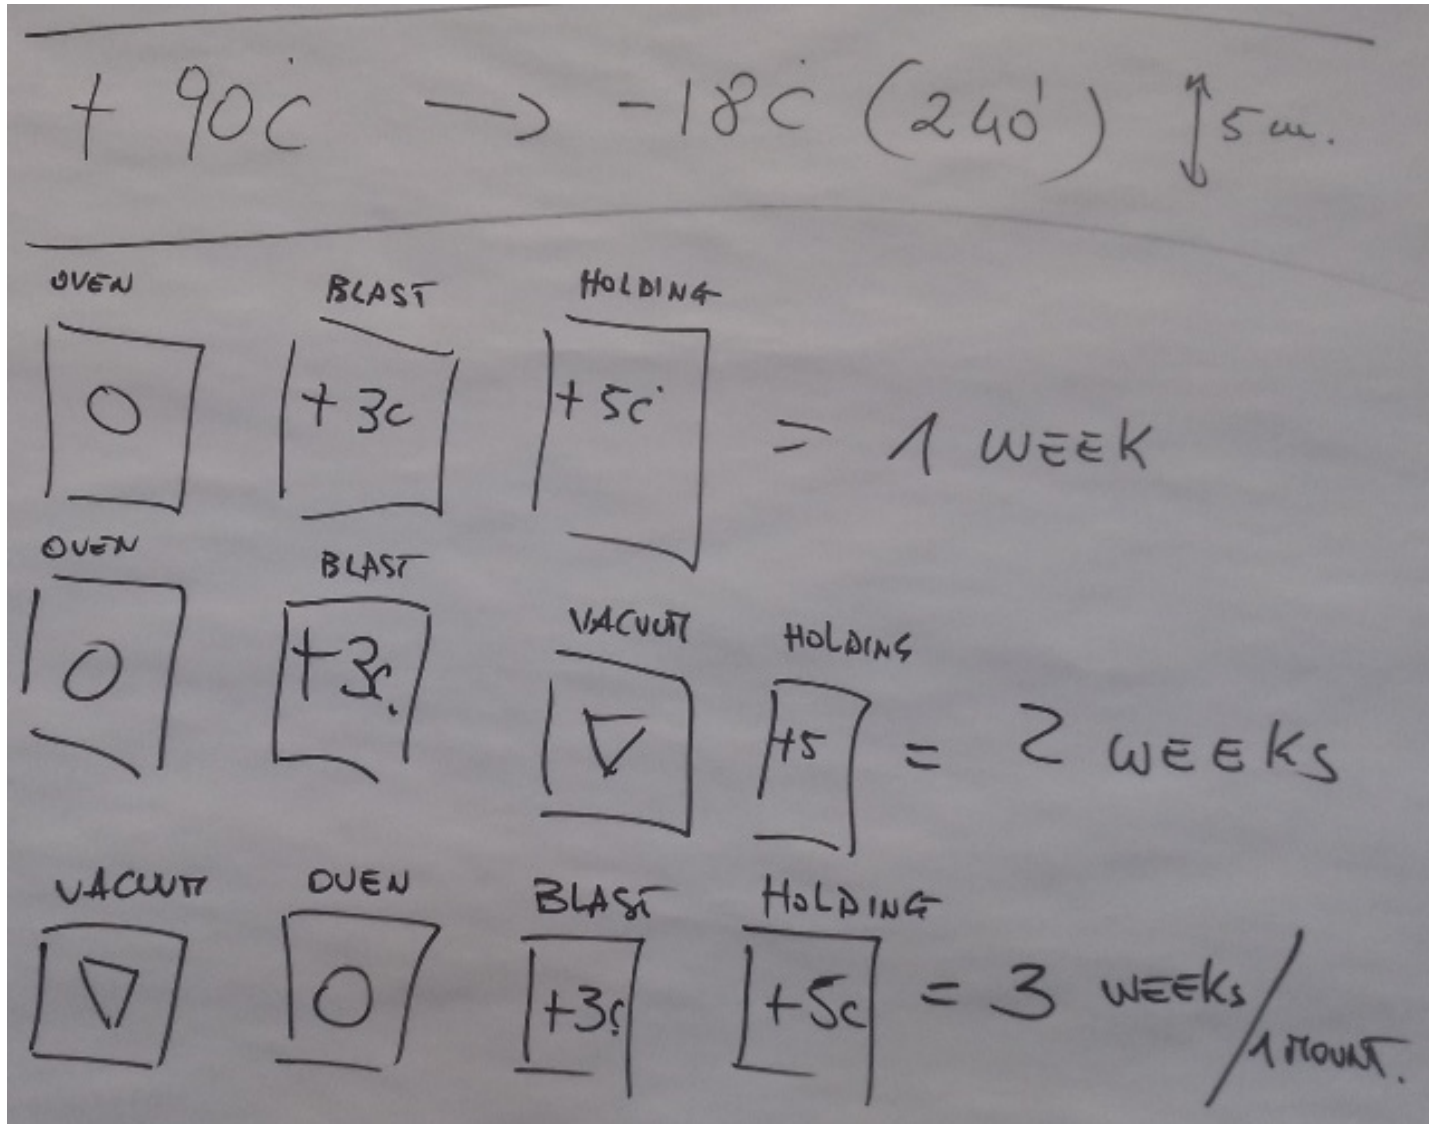 + 90°C → -18°C (240') ↕ 5 cm.
OVEN BLAST HOLDING
O +3C +5C° = 1 WEEK
OVEN BLAST VACUUM HOLDING
O +3C. ▽ +5 = 2 WEEKS
VACUUM OVEN BLAST HOLDING
▽ O +3C +5C = 3 WEEKS / 1 MOUNT.